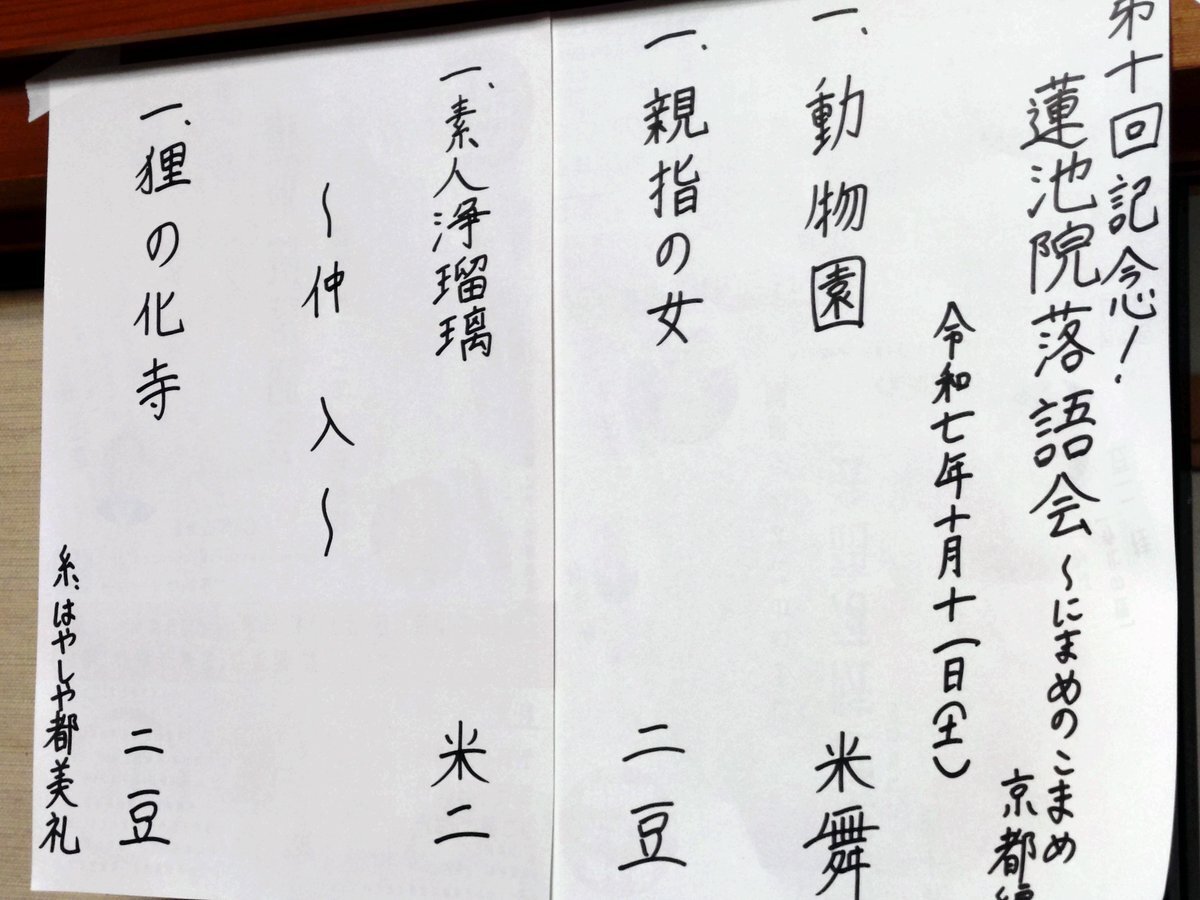 第十回記念！
蓮池院落語会〜にまめのこまめ
京都編
令和七年十月十一日(土)
一、動物園 米舞
一、親指の女 二豆
一、素人浄瑠璃 米二
〜仲入〜
一、狸の化寺 二豆
糸、はやしや都美礼